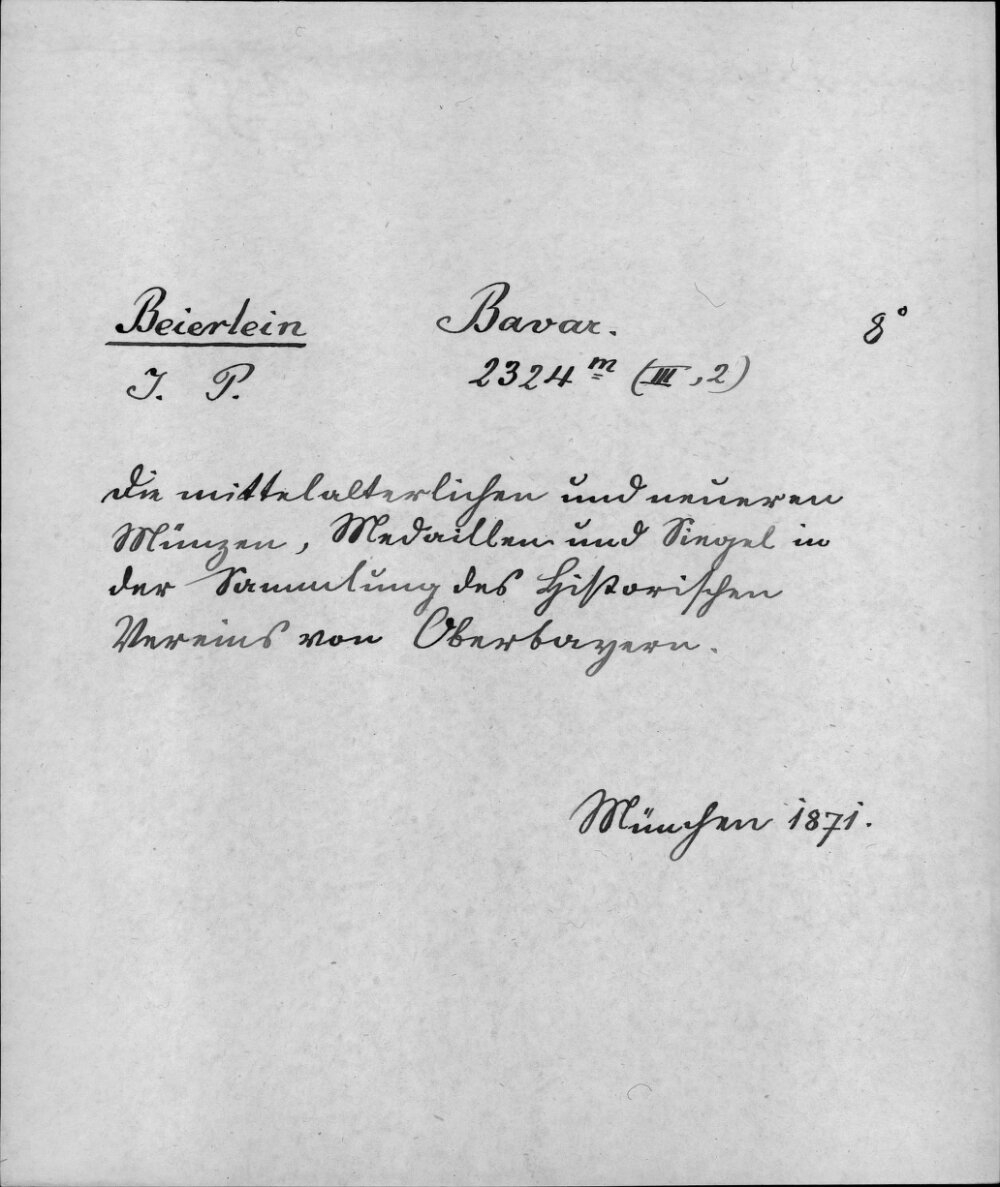 Beierlein Bavar. 8°
J. P. 2324 m (III, 2)
Die mittelalterlichen und neueren
Münzen, Medaillen und Siegel in
der Sammlung des Historischen
Vereins von Oberbayern.
München 1871.